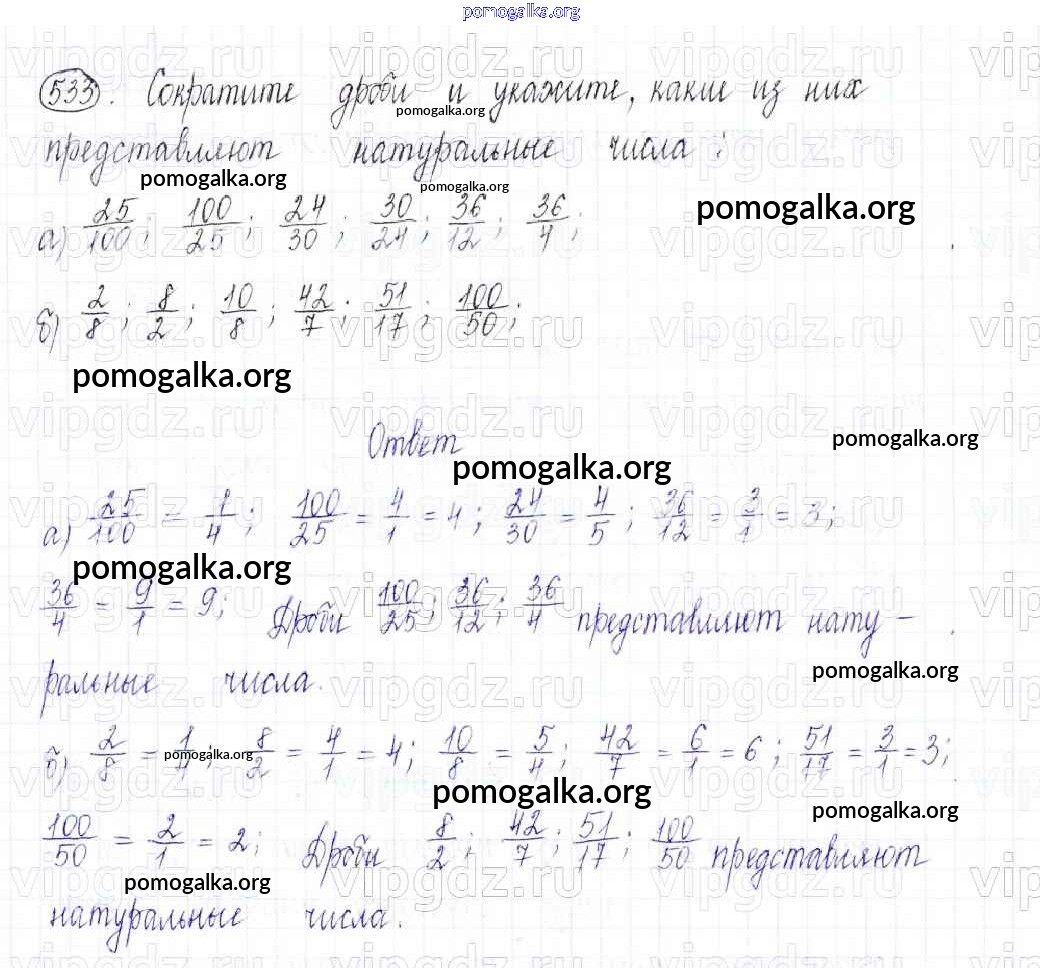 pomogalka.org
533. Сократите дроби и укажите, какие из них
pomogalka.org
представляют натуральные числа:
pomogalka.org pomogalka.org
pomogalka.org
а) 25/100; 100/25; 24/30; 30/24; 36/12; 36/4;
б) 2/8; 8/2; 10/8; 42/7; 51/17; 100/50;
pomogalka.org
Ответ
pomogalka.org
pomogalka.org
а) 25/100 = 1/4; 100/25 = 4/1 = 4; 24/30 = 4/5; 36/12 = 3/1 = 3;
pomogalka.org
36/4 = 9/1 = 9; Дроби 100/25; 36/12; 36/4 представляют нату-
pomogalka.org
ральные числа.
б) 2/8 = 1/4; 8/2 = 4/1 = 4; 10/8 = 5/4; 42/7 = 6/1 = 6; 51/17 = 3/1 = 3;
pomogalka.org
pomogalka.org
pomogalka.org
100/50 = 2/1 = 2; Дроби 8/2; 42/7; 51/17; 100/50 представляют
pomogalka.org
натуральные числа.
vipgdz.ru